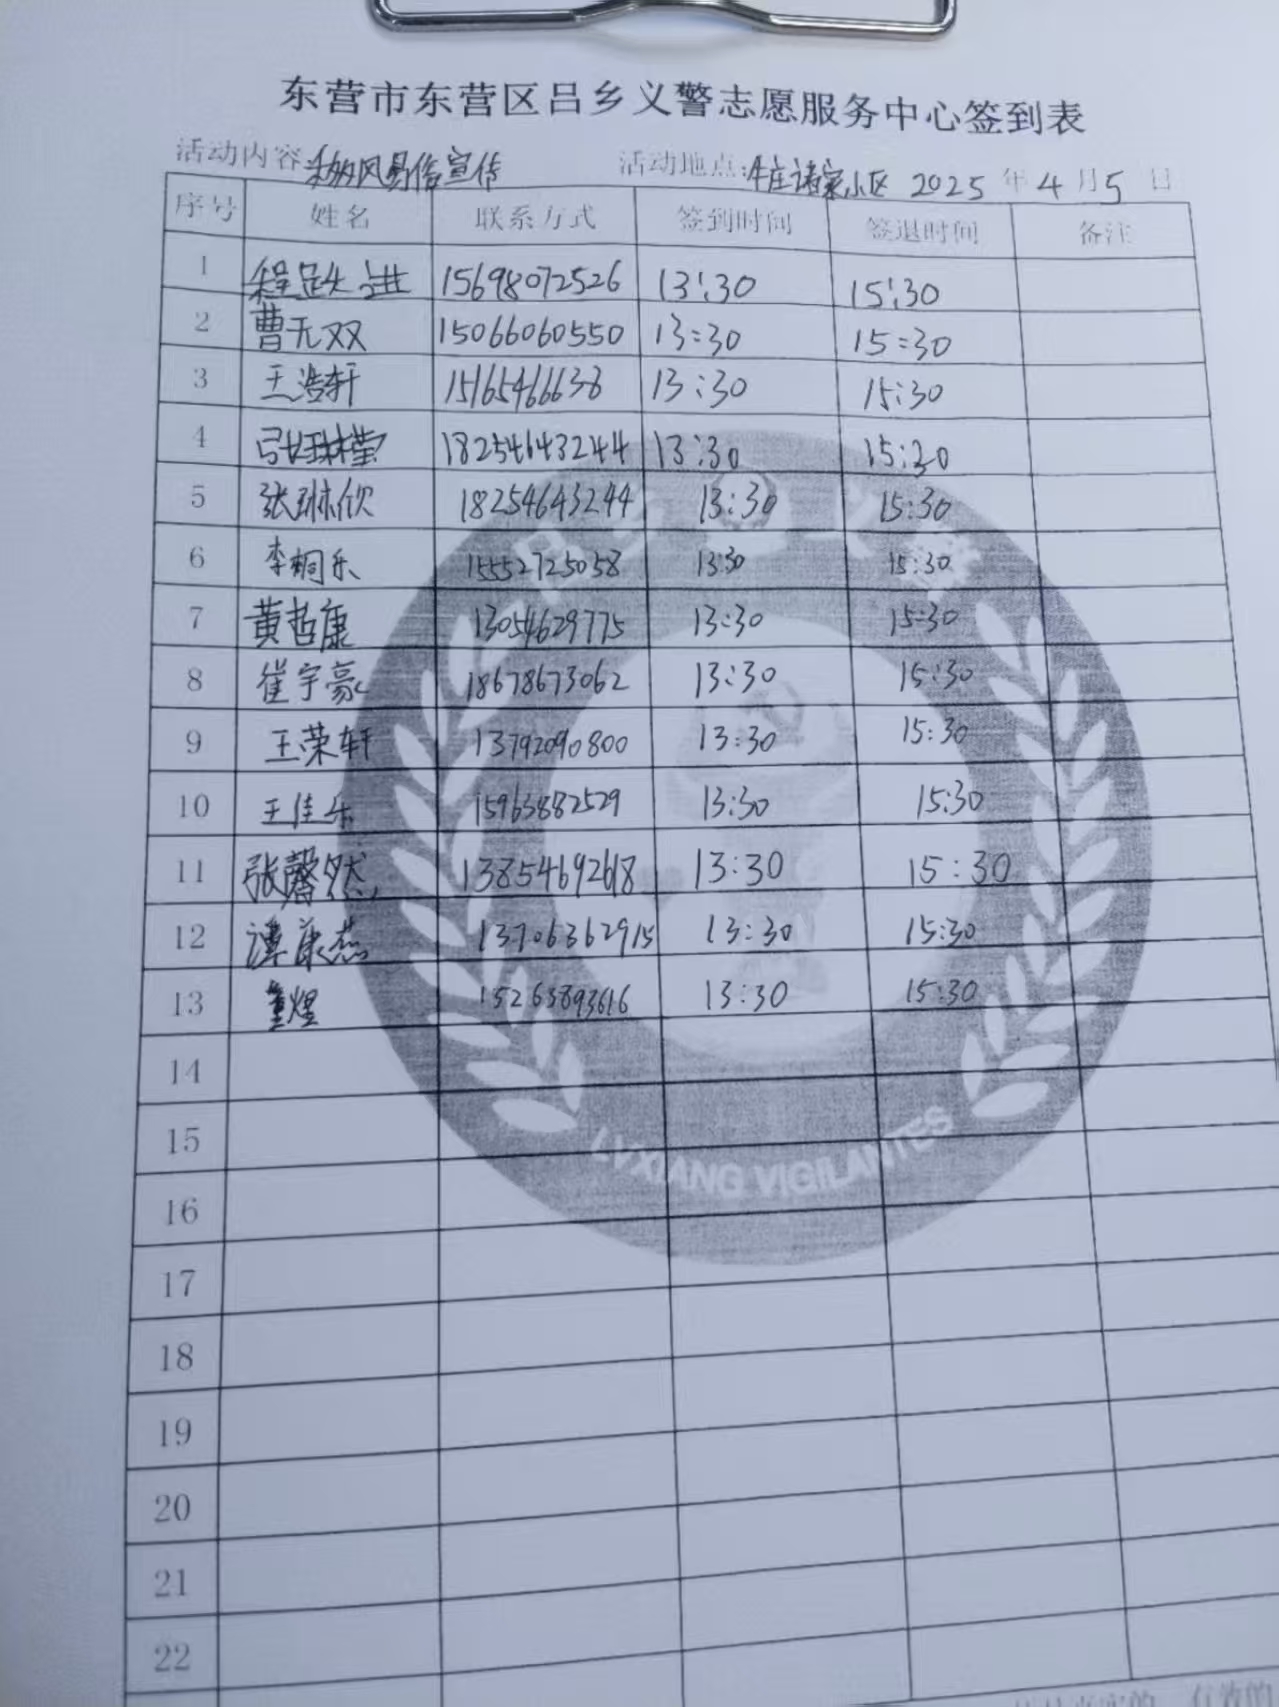 东营市东营区吕乡义警志愿服务中心签到表
活动内容:移风易俗宣传 活动地点:牛庄诸家小区 2025 年 4 月 5 日
序号 姓名 联系方式 签到时间 签退时间 备注
1 程跃进 15698072526 13:30 15:30
2 曹无双 15066060550 13:30 15:30
3 王浩轩 15165466638 13:30 15:30
4 18254643244 13:30 15:30
5 张琳欣 18254643244 13:30 15:30
6 李桐乐 15552725058 13:30 15:30
7 黄哲康 13054629775 13:30 15:30
8 崔宇豪 18678673062 13:30 15:30
9 王荣轩 13792090800 13:30 15:30
10 王佳乐 15963882529 13:30 15:30
11 张馨然 13854692618 13:30 15:30
12 谭康蕊 13706362915 13:30 15:30
13 董煜 15263893616 13:30 15:30
14
15
16
17
18
19
20
21
22
LVXIANG VIGILANTES